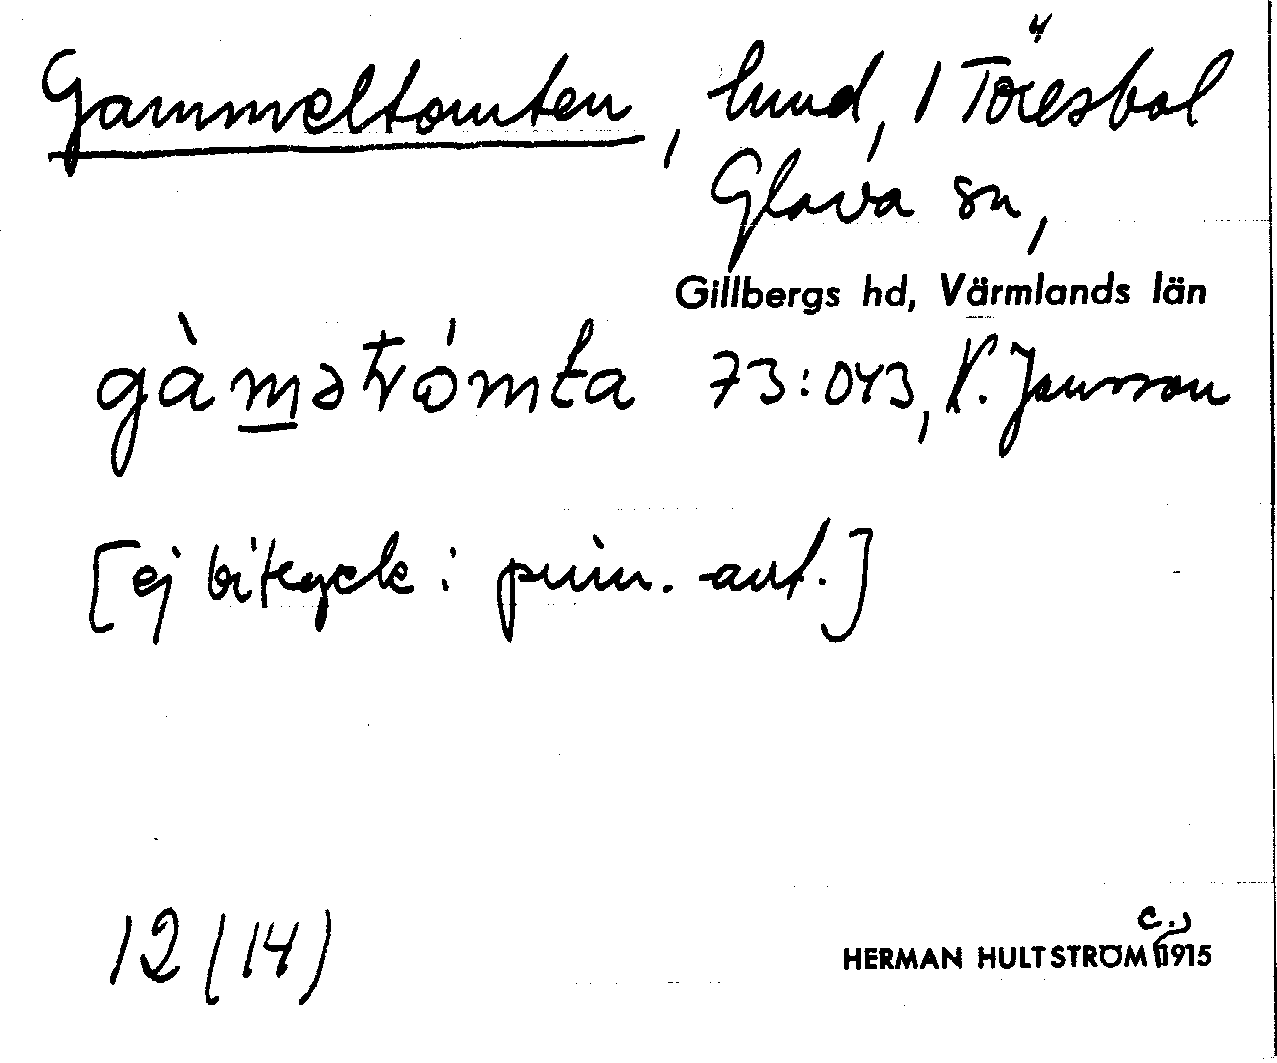 Gammeltomten, lund, 1 Töresbol
Glava sn,
Gillbergs hd, Värmlands län
gàmətrómta 73:043, K. Jansson
[ej bitryck i prim. ant.]
12 (14)
HERMAN HULTSTRÖM c. 1915